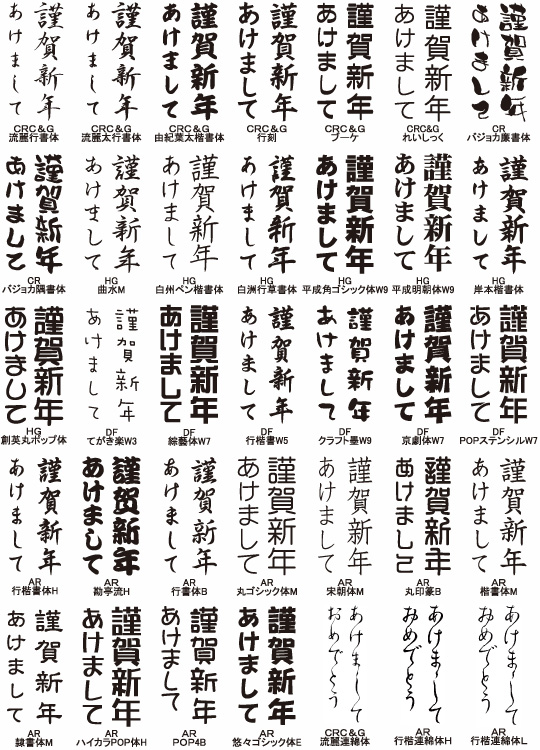 謹賀新年
あけまして
CRC&G
流麗行書体
謹賀新年
あけまして
CRC&G
流麗太行書体
謹賀新年
あけまして
CRC&G
由紀葉太楷書体
謹賀新年
あけまして
CRC&G
行刻
謹賀新年
あけまして
CRC&G
ブーケ
謹賀新年
あけまして
CRC&G
れいしっく
謹賀新年
あけまして
CR
バジョカ廉書体
謹賀新年
あけまして
CR
バジョカ隅書体
謹賀新年
あけまして
HG
曲水M
謹賀新年
あけまして
HG
白州ペン楷書体
謹賀新年
あけまして
HG
白洲行草書体
謹賀新年
あけまして
HG
平成角ゴシック体W9
謹賀新年
あけまして
HG
平成明朝体W9
謹賀新年
あけまして
HG
岸本楷書体
謹賀新年
あけまして
HG
創英丸ポップ体
謹賀新年
あけまして
DF
てがき楽W3
謹賀新年
あけまして
DF
綜藝体W7
謹賀新年
あけまして
DF
行楷書W5
謹賀新年
あけまして
DF
クラフト墨W9
謹賀新年
あけまして
DF
京劇体W7
謹賀新年
あけまして
DF
POPステンシルW7
謹賀新年
あけまして
AR
行楷書体H
謹賀新年
あけまして
AR
勘亭流H
謹賀新年
あけまして
AR
行書体B
謹賀新年
あけまして
AR
丸ゴシック体M
謹賀新年
あけまして
AR
宋朝体M
謹賀新年
あけまして
AR
丸印篆B
謹賀新年
あけまして
AR
楷書体M
謹賀新年
あけまして
AR
隷書体M
謹賀新年
あけまして
AR
ハイカラPOP体H
謹賀新年
あけまして
AR
POP4B
謹賀新年
あけまして
AR
悠々ゴシック体E
あけまして
おめでとう
CRC&G
流麗連綿体
あけまして
おめでとう
AR
行楷連綿体H
あけまして
おめでとう
AR
行楷連綿体L